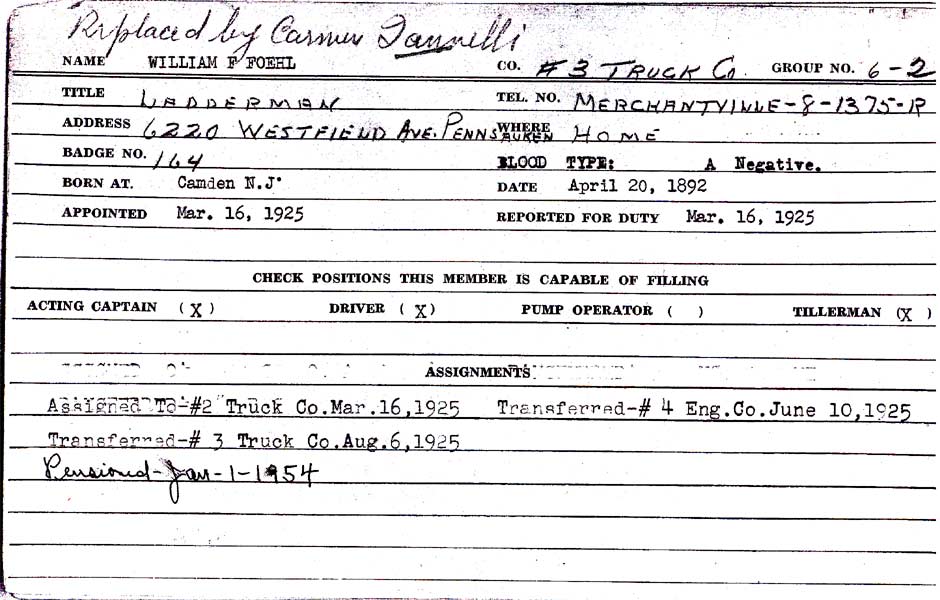 Replaced by Carmen Iannelli
NAME WILLIAM F FOEHL CO. #3 TRUCK Co. GROUP NO. 6-2
TITLE LADDERMAN TEL. NO. MERCHANTVILLE-8-1375-R
ADDRESS 6220 WESTFIELD AVE. PENNSAUKEN WHERE HOME
BADGE NO. 164 BLOOD TYPE: A Negative.
BORN AT. Camden N.J. DATE April 20, 1892
APPOINTED Mar. 16, 1925 REPORTED FOR DUTY Mar. 16, 1925
CHECK POSITIONS THIS MEMBER IS CAPABLE OF FILLING
ACTING CAPTAIN (X) DRIVER (X) PUMP OPERATOR ( ) TILLERMAN (X)
ASSIGNMENTS
Assigned To-#2 Truck Co.Mar.16,1925 Transferred-# 4 Eng.Co.June 10,1925
Transferred-# 3 Truck Co.Aug.6,1925
Pensioned-Jan-1-1954